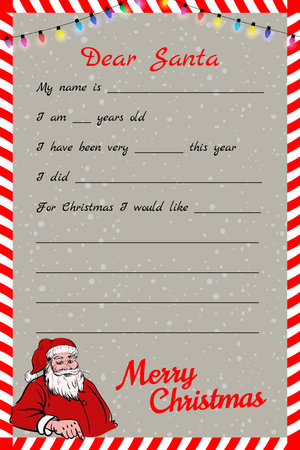 Dear Santa
My name is ____________________
I am ___ years old
I have been very ________ this year
I did ______________________________
For Christmas I would like __________
Merry
Christmas